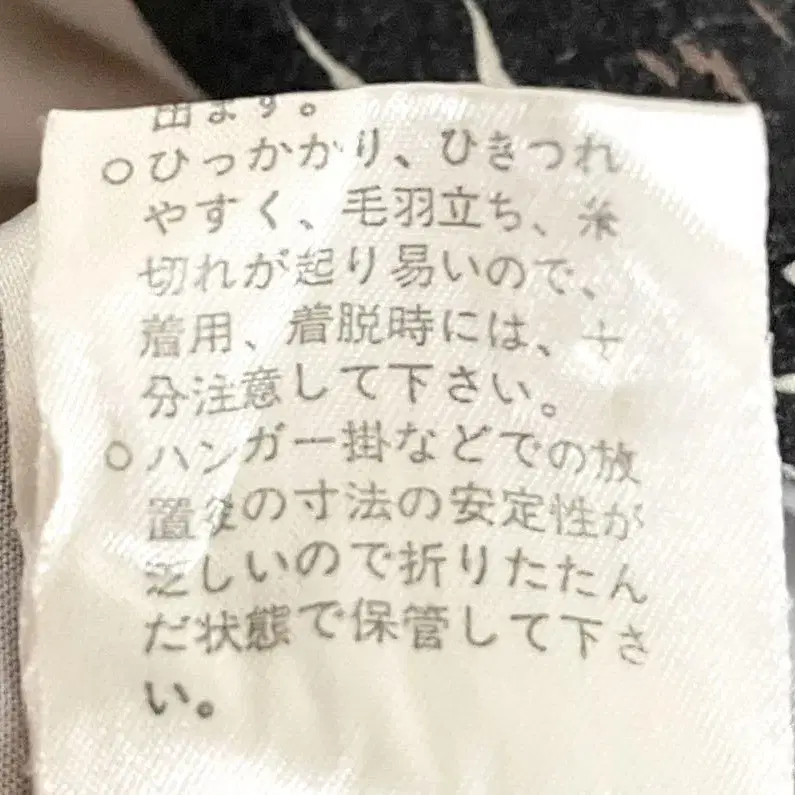 出ます。
○ひっかかり、ひきつれ
やすく、毛羽立ち、糸
切れが起り易いので、
着用、着脱時には、十
分注意して下さい。
○ハンガー掛などでの放
置後の寸法の安定性が
乏しいので折りたたん
だ状態で保管して下さ
い。